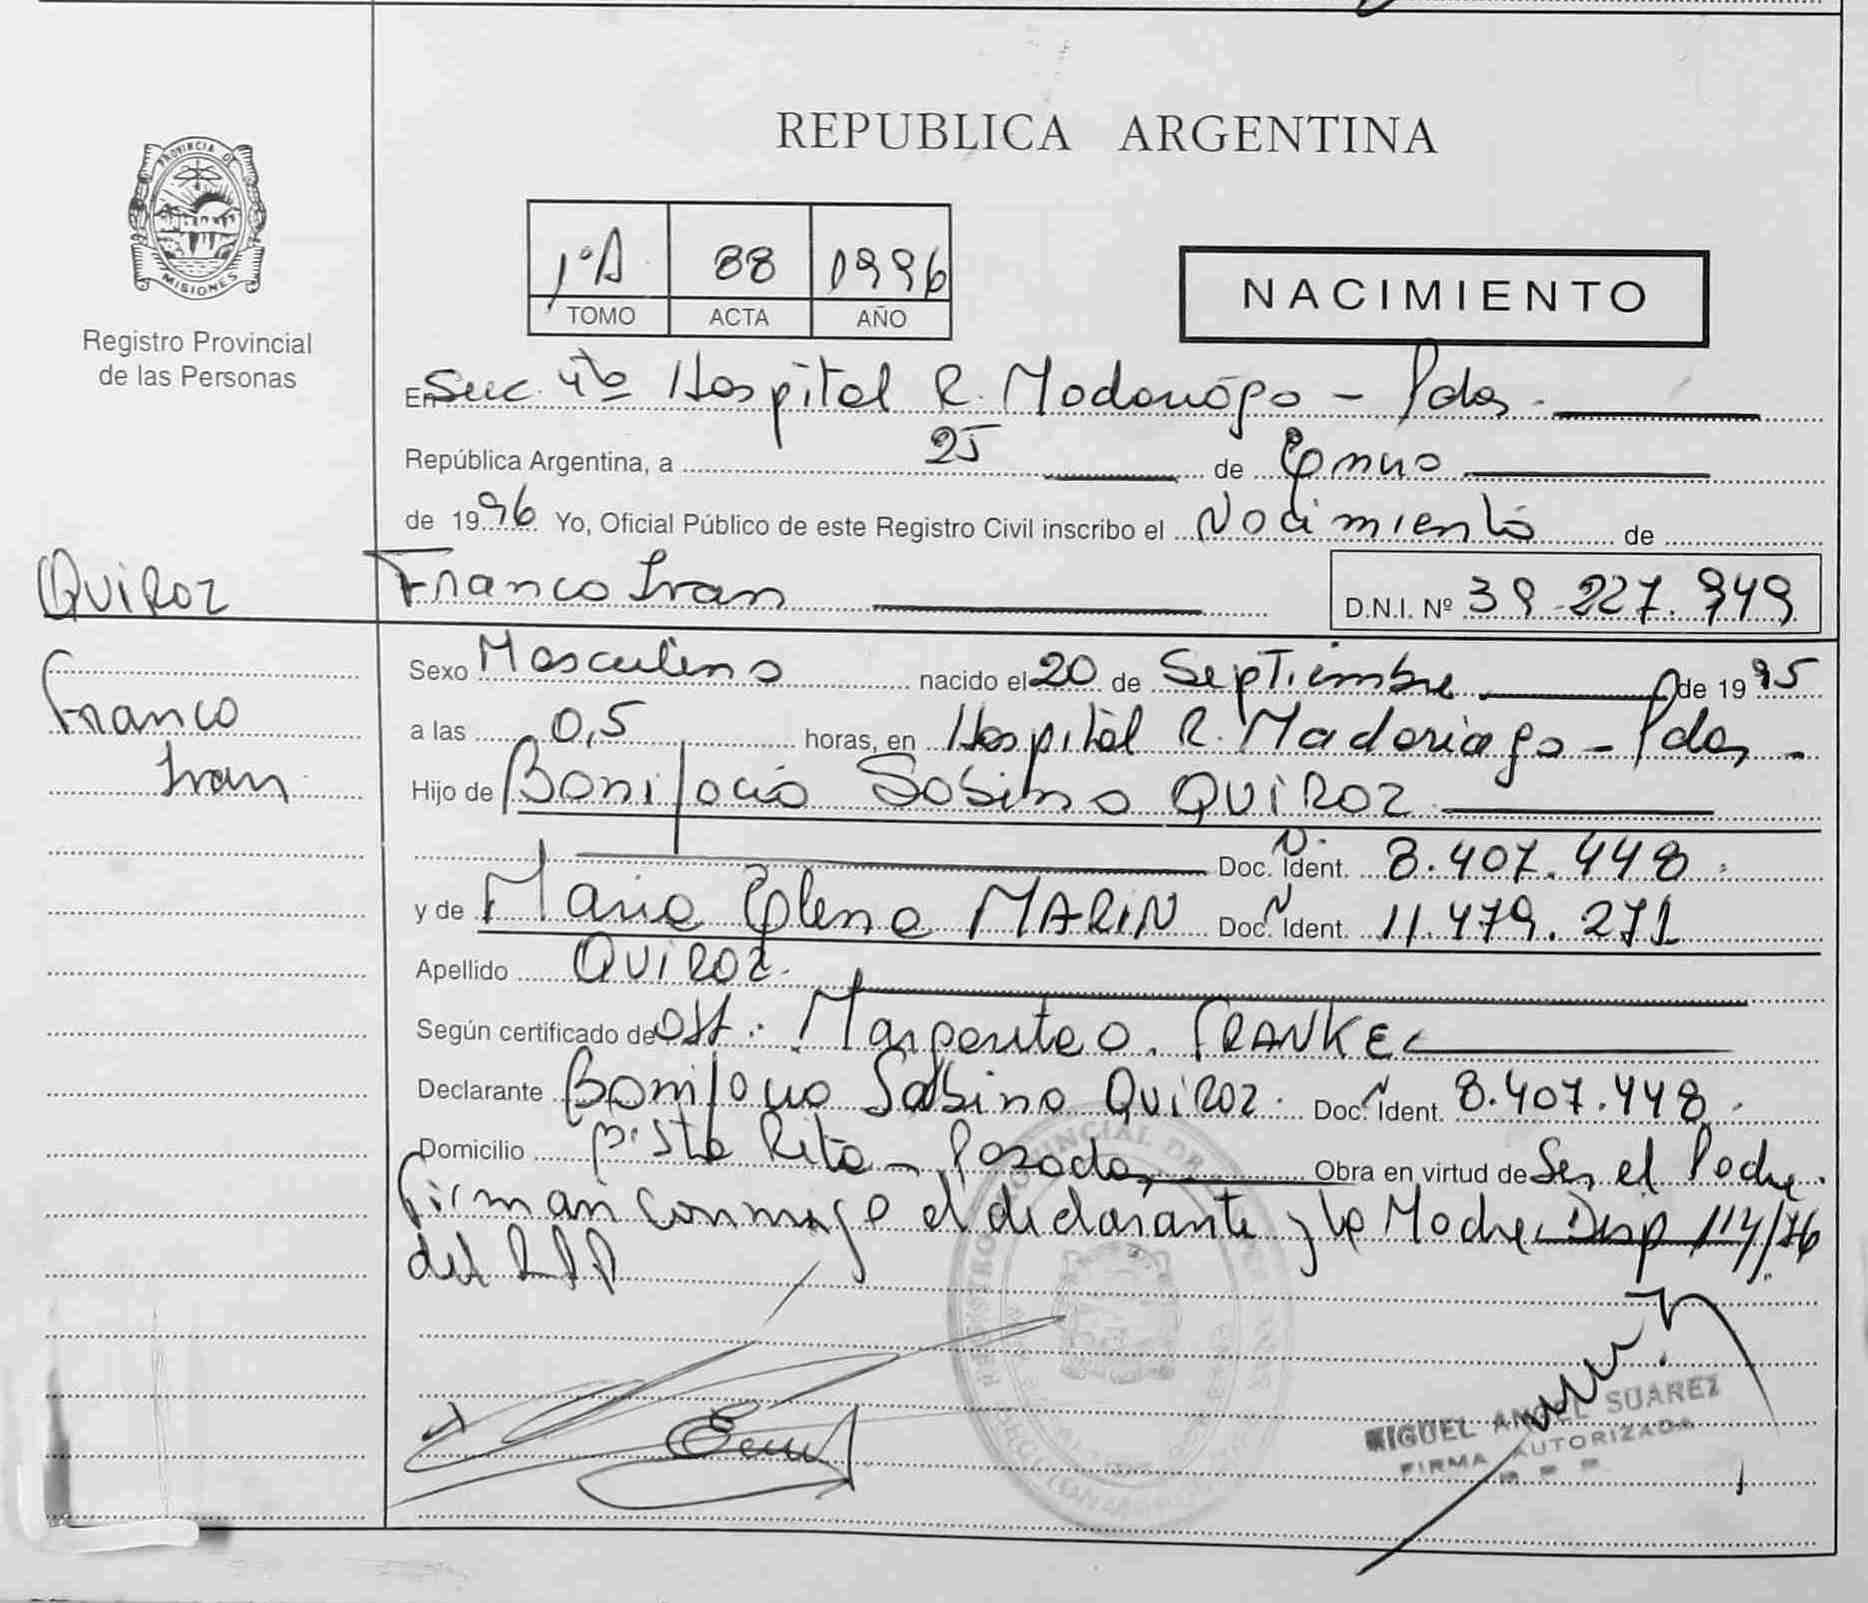 REPUBLICA ARGENTINA
PROVINCIA DE
MISIONES
Registro Provincial
de las Personas
1ºA 88 1996
TOMO ACTA AÑO
NACIMIENTO
En Suc. 4ta Hospital R. Madariaga - Pdas.
República Argentina, a 25 de Enero
de 1996 Yo, Oficial Público de este Registro Civil inscribo el Nacimiento de
QUIROZ Franco Ivan D.N.I. Nº 39.227.949
Franco
Ivan
Sexo Masculino nacido el 20 de Septiembre de 1995
a las 0,5 horas, en Hospital R. Madariaga - Pdas -
Hijo de Bonifacio Sabino QUIROZ
Doc. Ident. 8.407.448
y de Maria Elena MARIN Doc. Ident. 11.479.271
Apellido QUIROZ.
Según certificado de Obt. Margarita O. FRANKE
Declarante Bonifacio Sabino QUIROZ. Doc. Ident. 8.407.448.
Domicilio Bº Sta Rita - Posadas Obra en virtud de Ser el Padre.
Firman conmigo el declarante y la Madre Disp 114/76
del RPP
MIGUEL ANGEL SUAREZ
FIRMA AUTORIZADA